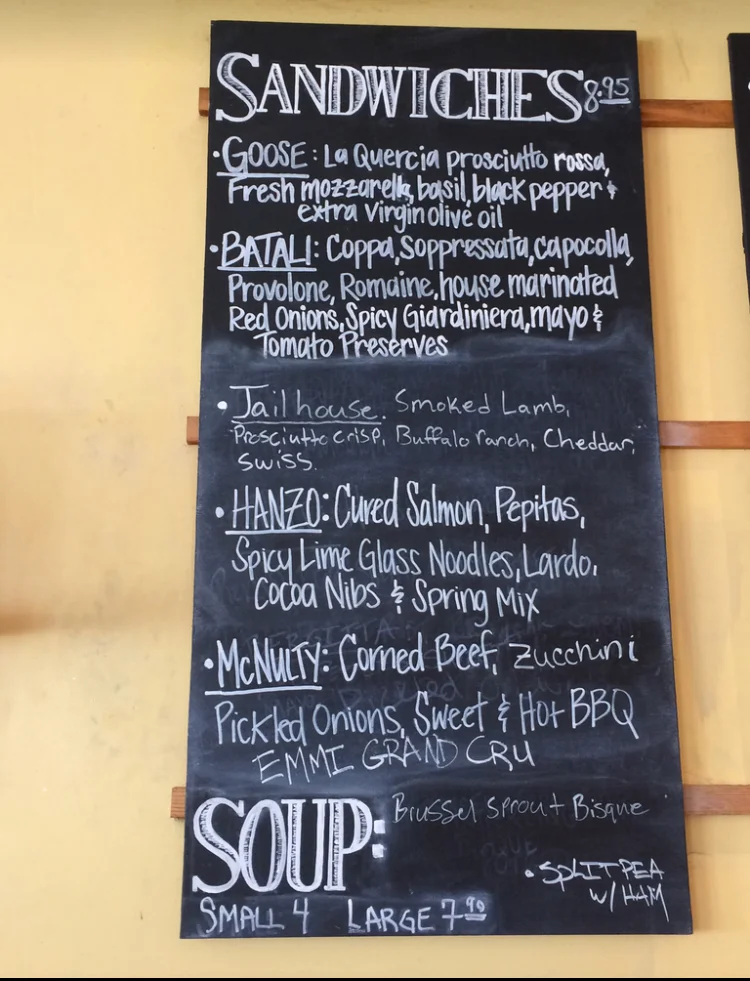 SANDWICHES 8.95
• GOOSE: La Quercia prosciutto rossa,
Fresh mozzarella, basil, black pepper &
extra virgin olive oil
• BATALI: Coppa, Soppressata, capocolla,
Provolone, Romaine, house marinated
Red Onions, Spicy Giardiniera, mayo &
Tomato Preserves
• Jailhouse. Smoked Lamb,
Prosciutto crisp, Buffalo ranch, Cheddar,
Swiss.
• HANZO: Cured Salmon, Pepitas,
Spicy Lime Glass Noodles, Lardo,
Cocoa Nibs & Spring Mix
• McNULTY: Corned Beef, Zucchini
Pickled Onions, Sweet & Hot BBQ
EMMI GRAND CRU
SOUP: Brussel sprout Bisque
• SPLIT PEA
w/ HAM
SMALL 4 LARGE 7.90